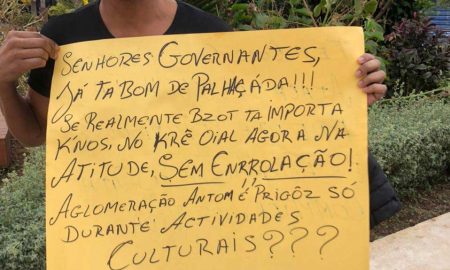 SENHORES GOVERNANTES,
JÁ TA BOM DE PALHAÇÁDA!!!
SE REALMENTE BZOT TA IMPORTA
KNOS, NO KRÊ OIAL AGORA NA
ATITUDE, SEM ENRROLAÇÃO!
AGLOMERAÇÃO ANTOM É PRIGÔZ SÓ
DURANTE ACTIVIDADES
CULTURAIS???